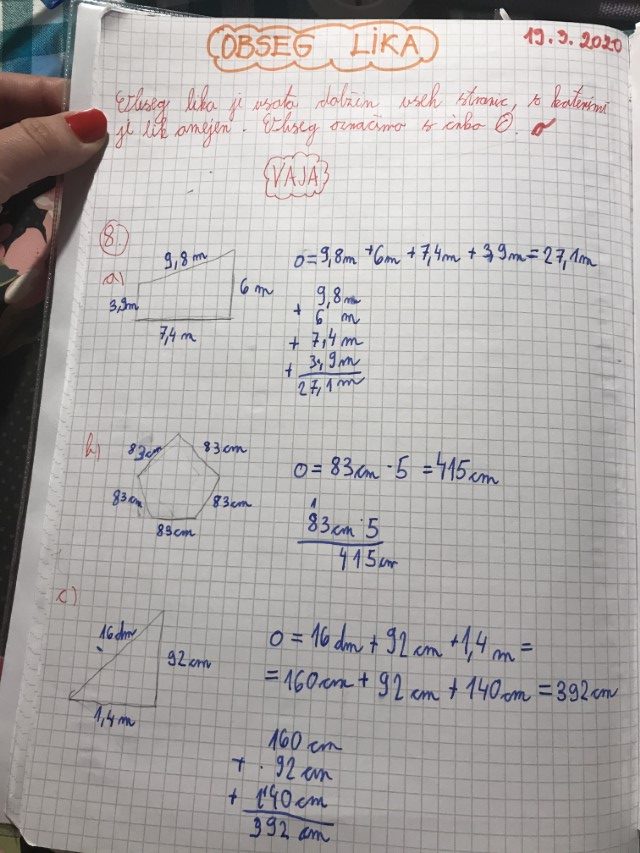 OBSEG LIKA
19.3.2020
Obseg lika je vsota dolžin vseh stranic, s katerimi
je lik omejen. Obseg označimo s črko O.
VAJA
8.
a)
9,8m
3,9m
6 m
7,4m
O=9,8m+6m+7,4m+3,9m=27,1m
9,8m
+ 6 m
+ 7,4m
+ 3,9m
27,1m
b)
83cm
83cm
83cm
83cm
83cm
O=83cm·5=415cm
1
83cm·5
415cm
c)
16dm
92cm
1,4m
O=16dm+92cm+1,4m=
=160cm+92cm+140cm=392cm
160cm
+ 92cm
+ 140cm
392cm